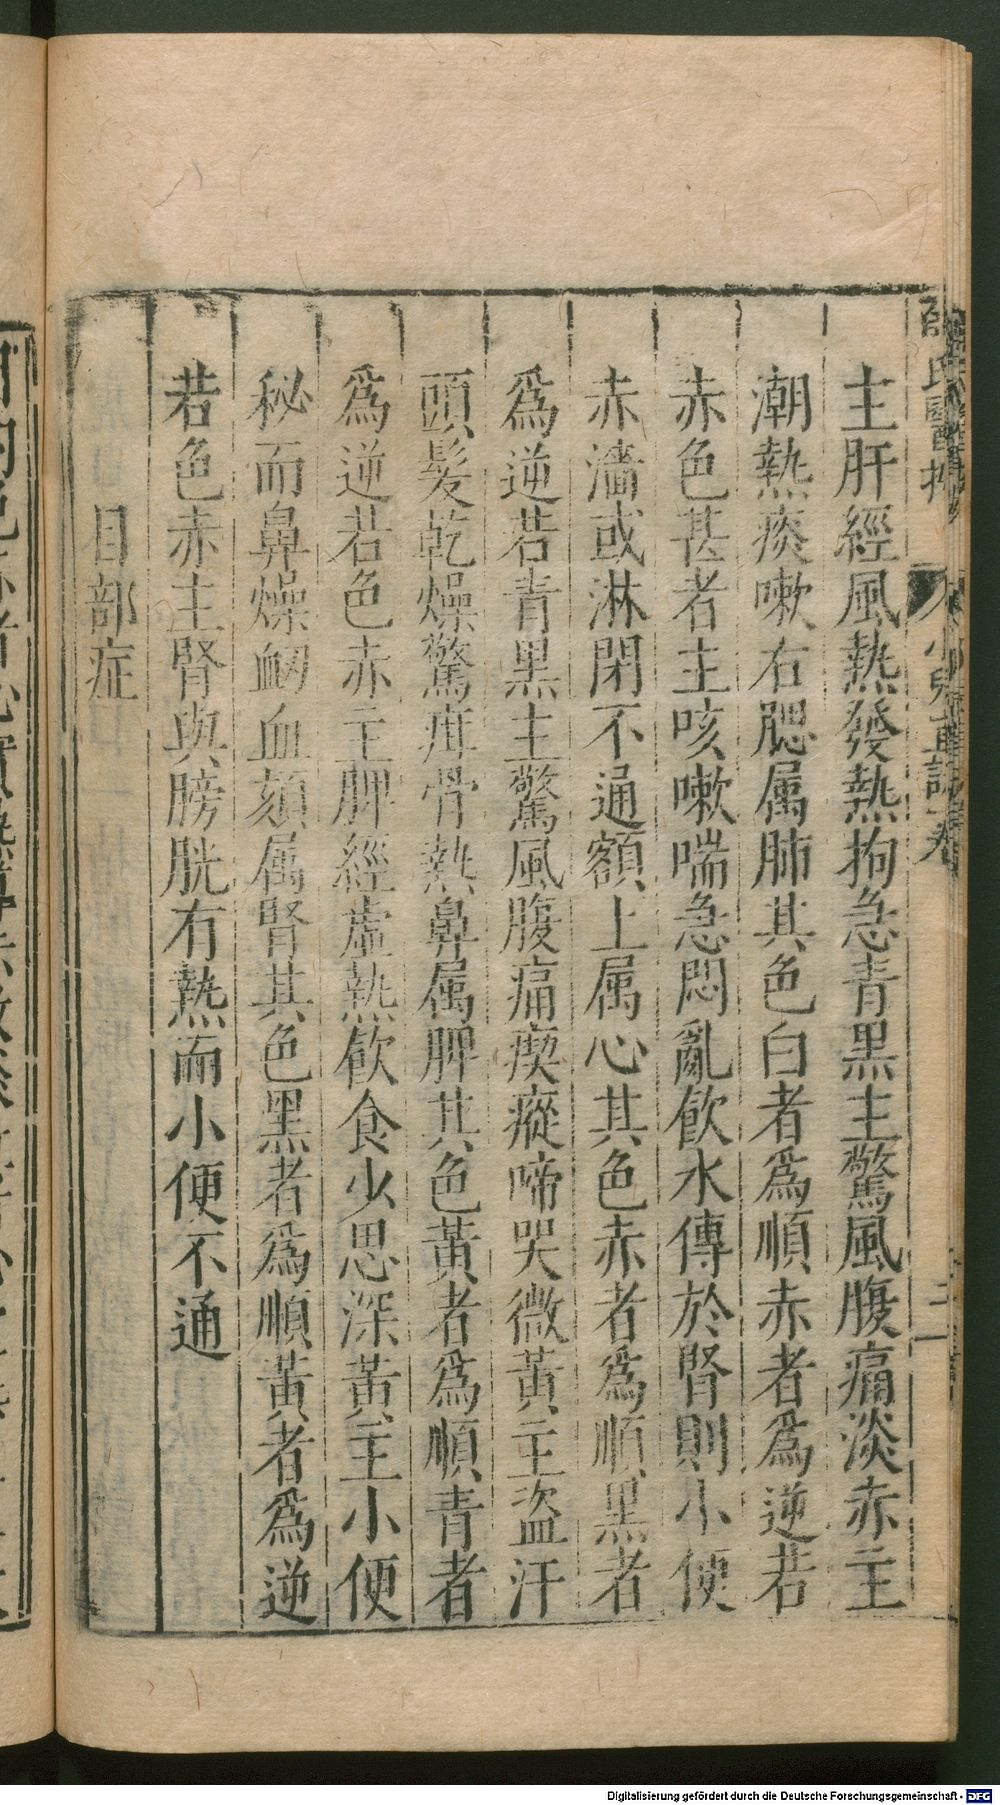 主肝經風熱發熱拘急青黑主驚風腹痛淡赤主
潮熱痰嗽右腮属肺其色白者為順赤者為逆若
赤色甚者主咳嗽喘急悶亂飲水傳於腎則小便
赤濇或淋閉不通額上属心其色赤者為順黑者
為逆若青黑主驚風腹痛瘈瘲啼哭微黃主盜汗
頭髮乾燥驚疳骨熱鼻属脾其色黃者為順青者
為逆若色赤主脾經虛熱飲食少思深黃主小便
秘而鼻燥衂血頦属腎其色黑者為順黃者為逆
若色赤主腎與膀胱有熱而小便不通
目部症
Digitalisierung gefördert durch die Deutsche Forschungsgemeinschaft - DFG